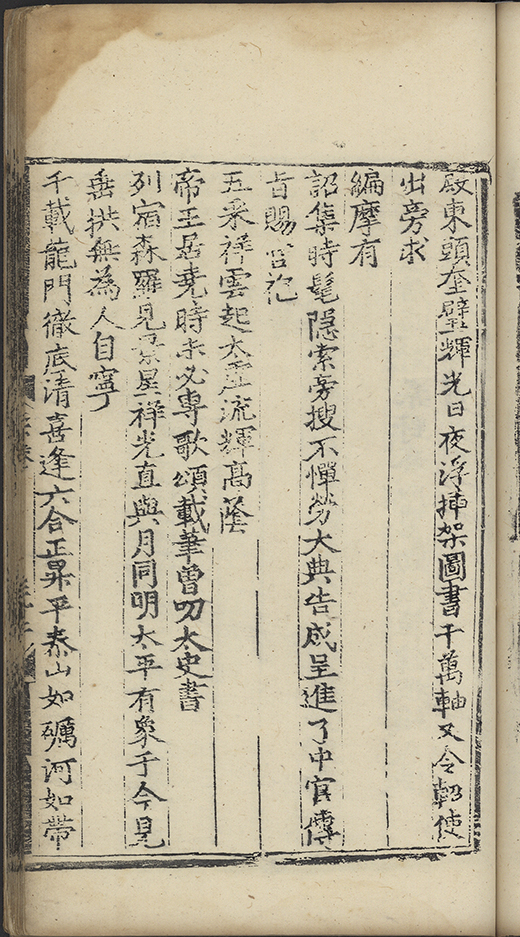 殿東頭奎壁輝光日夜浮揷架圖書千萬軸又令軺使
出旁求
編摩有
詔集時髦隠索旁搜不憚勞大典告成呈進了中官傳
旨賜宮袍
五采祥雲起太虛流輝高蔭
帝王居堯時未必專歌頌載筆曽叨太史書
列宿森羅見景星祥光直與月同明太平有象于今見
垂拱無為人自寧
千載龍門徹底清喜逢六合正昇平泰山如礪河如帶